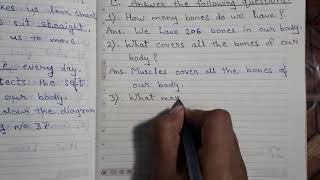 makes us look smart
us sit straight,
us to move
every day.
tects the soft
our body.
colour the diagram
no. 37
C. Answer the following questions:
1). How many bones do we have?
Ans. We have 206 bones in our body.
2). What covers all the bones of our
body?
Ans. Muscles cover all the bones of
our body.
3). What may